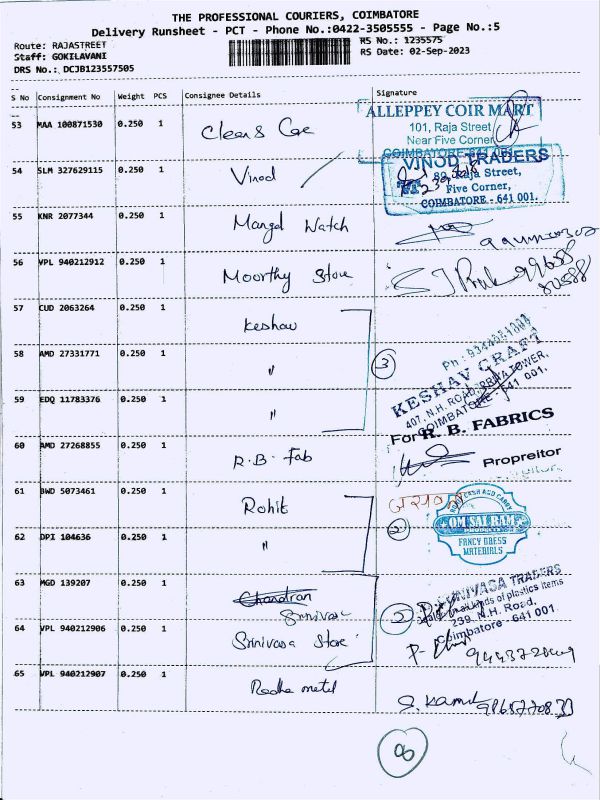 THE PROFESSIONAL COURIERS, COIMBATORE
Delivery Runsheet - PCT - Phone No.:0422-3505555 - Page No.:5
Route: RAJASTREET
RS No.: 1235575
Staff: GOKILAVANI
RS Date: 02-Sep-2023
DRS No.: DCJB123557505
S No Consignment No Weight PCS Consignee Details Signature
53 MAA 100871530 0.250 1
ALLEPPEY COIR MART
101, Raja Street
Near Five Corner
COIMBATORE-641 001.
54 SLM 327629115 0.250 1 Vinod
VINOD TRADERS
Raja Street,
Five Corner,
COIMBATORE - 641 001.
55 KNR 2077344 0.250 1 Mangal Watch
56 VPL 940212912 0.250 1 Moorthy Store
57 CUD 2063264 0.250 1 Keshav
58 AMD 27331771 0.250 1 "
3
59 EDQ 11783376 0.250 1 "
KESHAV CRAFT
407, N.H. ROAD, PRIYA TOWER,
COIMBATORE - 641 001.
60 AMD 27268855 0.250 1 R.B. Fab
For R. B. FABRICS
Propreitor
61 BWD 5073461 0.250 1 Rohit
62 DPI 104636 0.250 1 "
2
OM SAI RAM
FANCY DRESS
MATERIALS
63 MGD 139207 0.250 1 Chandran
Srinivasa
2
SRINIVASA TRADERS
kinds of plastics items
239, N.H. Road,
Coimbatore - 641 001
64 VPL 940212906 0.250 1 Srinivasa Store
65 VPL 940212907 0.250 1 Radha metal
8